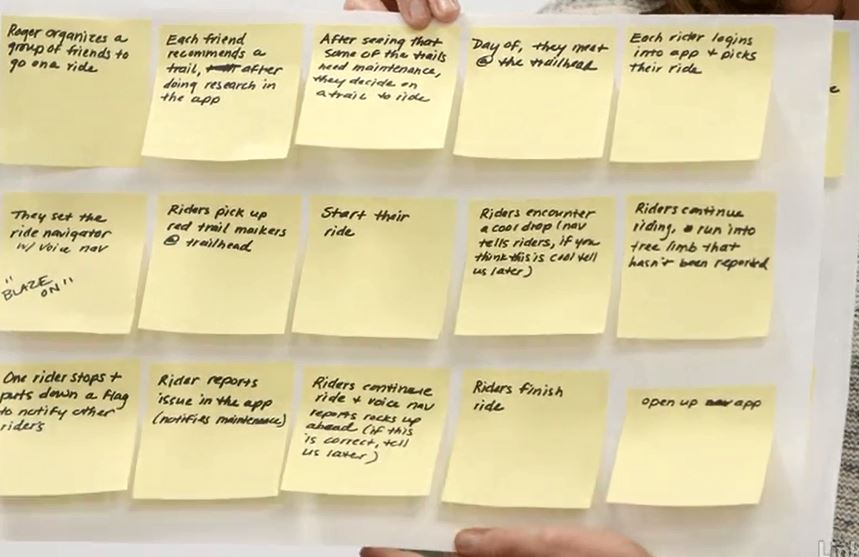 Roger organizes a
group of friends to
go on a ride
Each friend
recommends a
trail, after
doing research in
the app
After seeing that
some of the trails
need maintenance,
they decide on
a trail to ride
Day of, they meet
@ the trailhead
Each rider logins
into app + picks
their ride
They set the
ride navigator
w/ voice nav
"BLAZE
ON"
Riders pick up
red trail markers
@ trailhead
Start their
ride
Riders encounter
a cool drop (nav
tells riders, if you
think this is cool tell
us later)
Riders continue
riding, run into
tree limb that
hasn't been reported
One rider stops +
puts down a flag
to notify other
riders
Rider reports
issue in the app
(notifies maintenance)
Riders continue
ride + voice nav
reports rocks up
ahead (if this
is correct, tell
us later)
Riders finish
ride
open up app